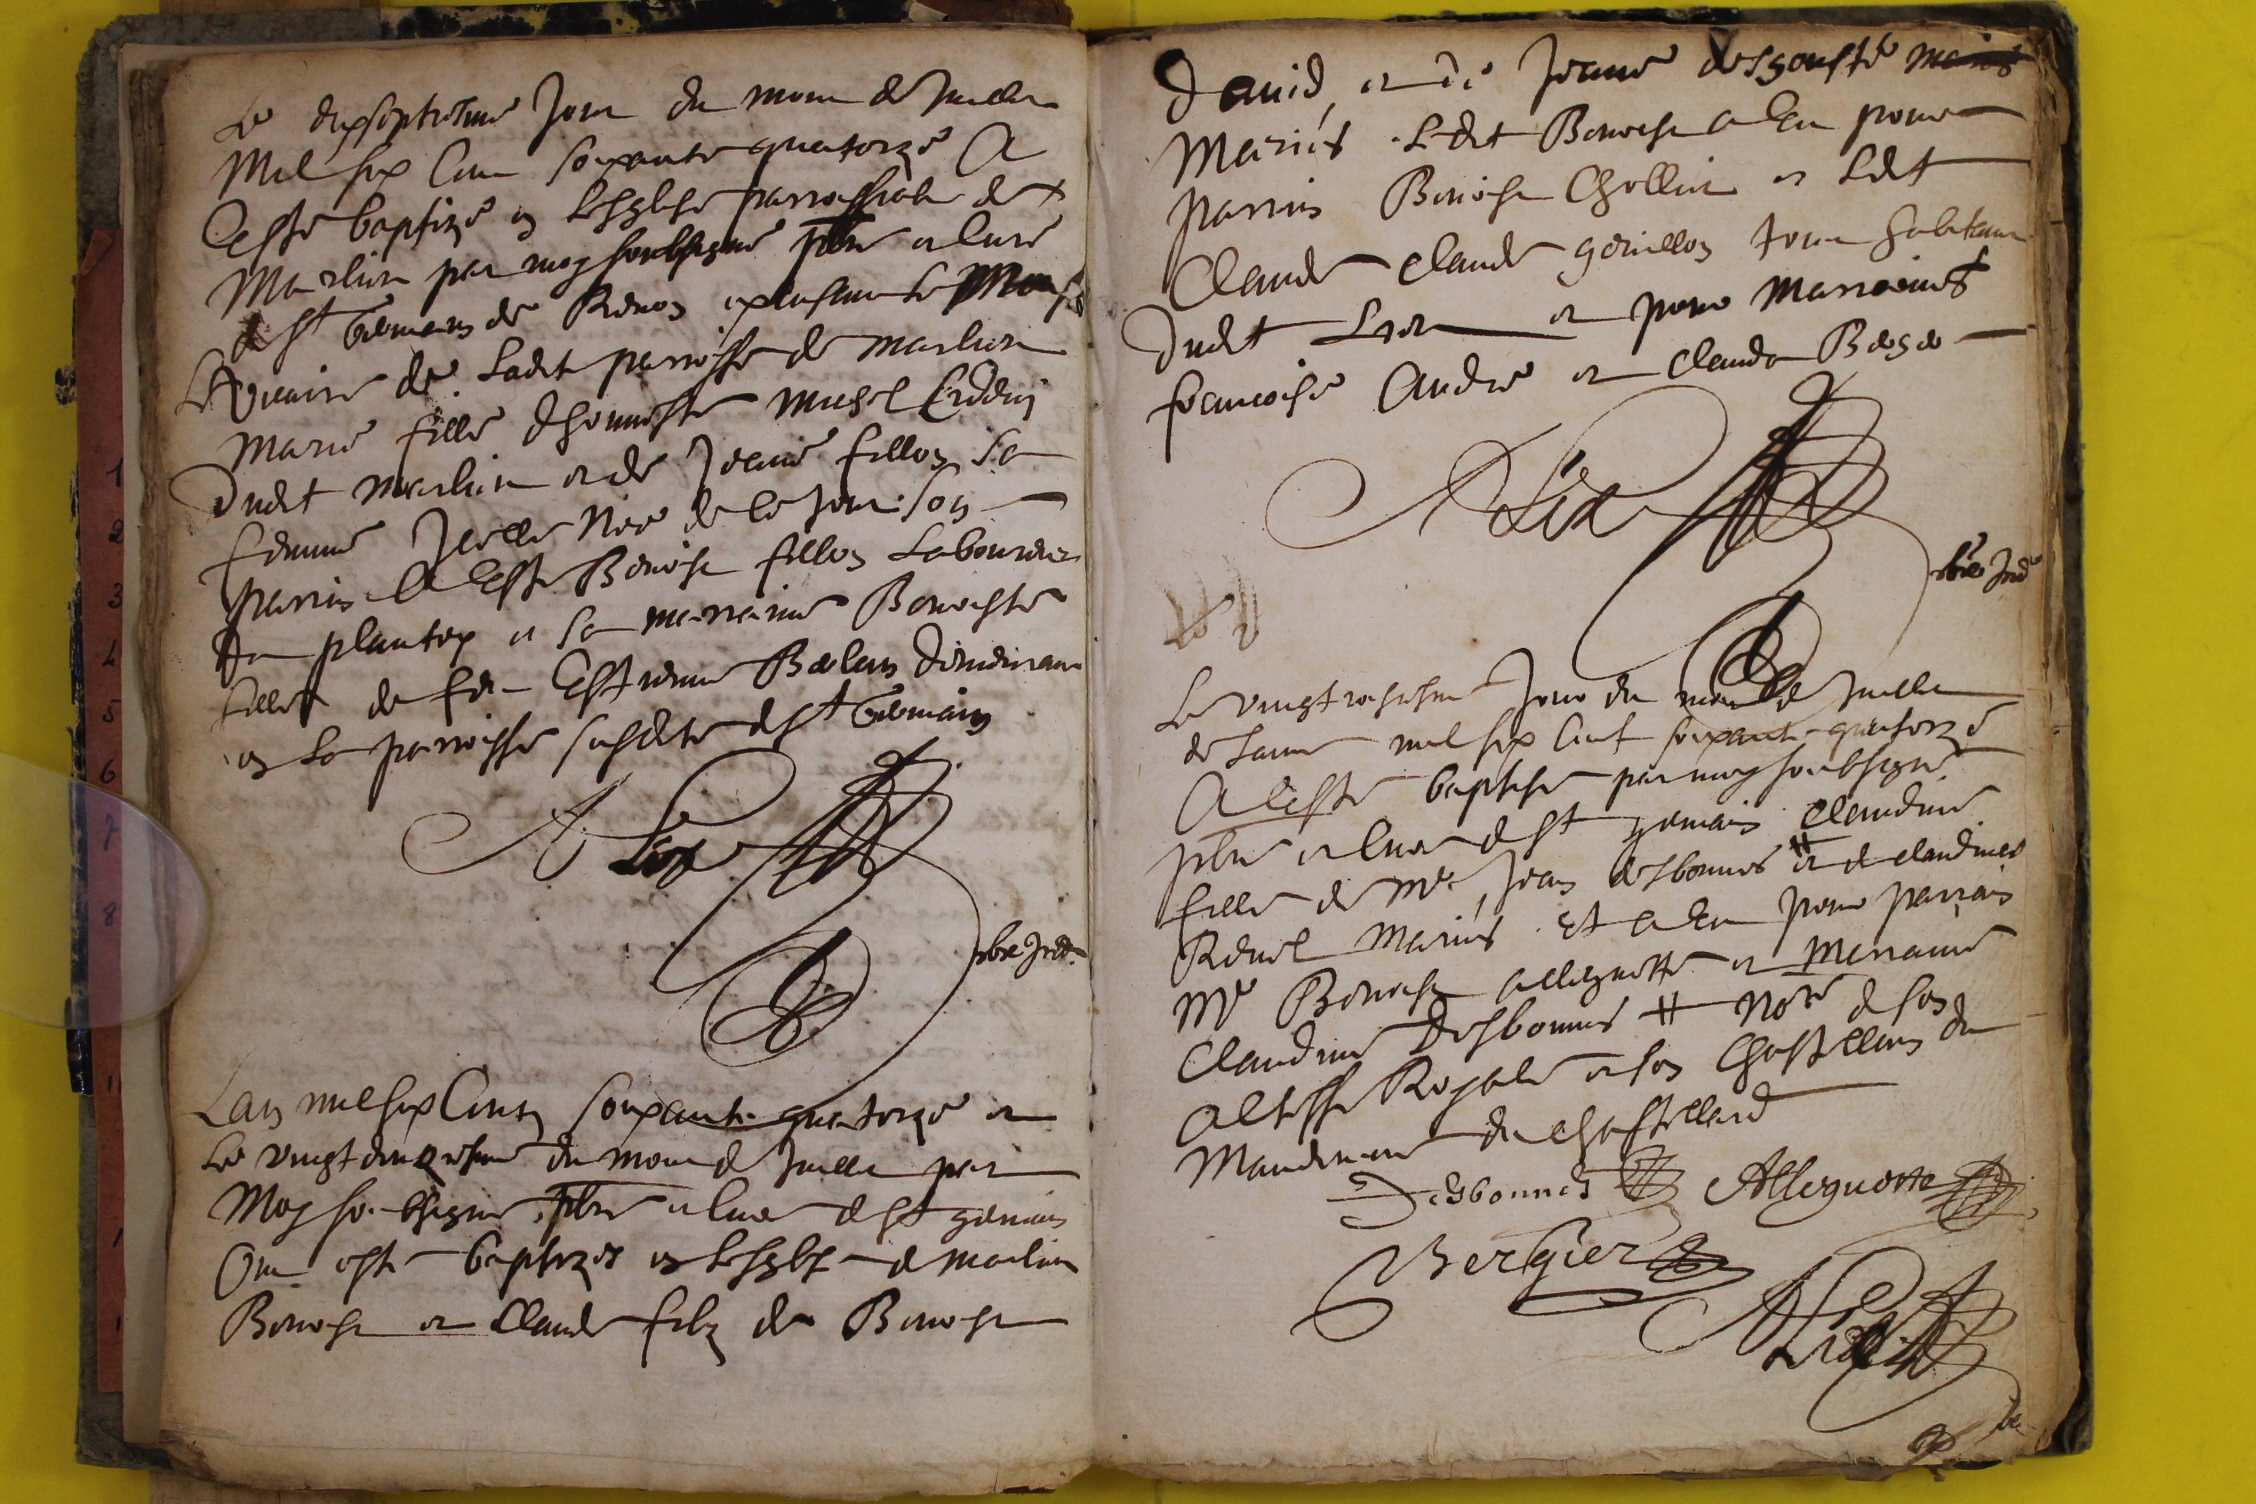 Le dixseptiesme Jour du moys de Juillet
Mil six Cens soixante quatorze A
Esté baptizé en Lesglise parrossiale de
Marlieu par moy soubsigné pbre et Curé
de St Germain de Renon
Le Vicaire de Ladite parroisse de Marlieu
Marie fille dhonneste Michel
Dudit Marlieu et de Jeanne fillon sa
femme Icelle Née de ce Jour son
parrin A Esté Benoist fillon Laboureur
du plantey et sa marraine Benoiste
fille de feu Estienne demeurant
en La parroisse susdite de St Germain
pbre Ind.
Lan mil six Cents soixante quatorze et
Le vingt deuxiesme du mois de Juillet par
Moy soubsigné, pbre et Curé de St germain
Ont esté baptizes en Lesglise de Marlieu
Benoist et Claude filz de Benoist
David, et de Jeanne
Mariés. Ledit Benoist a Eu pour
parrin Benoist Chollin et Ledit
Claude Claude gonillon tous habitans
Dudit Lieu et pour Marraines
francoise André et Clauda
pbre Ind.
Le vingt troisiesme Jour du mois de Juillet
de Lanne mil six Cent soixante quatorze
A Esté baptisé par moy soubsigné
pbre et Curé de St germain Claudine
fille de Me Jean desbonnes # et de claudine
Mariés. Et a Eu pour parrain
Me Benoist Alleguotte et Marraine
Claudine Desbonnes # Nore de son
Altesse Royale et son Chastellain du
Mandement du Chastellard
Desbonnes Alleguotte
Bergier